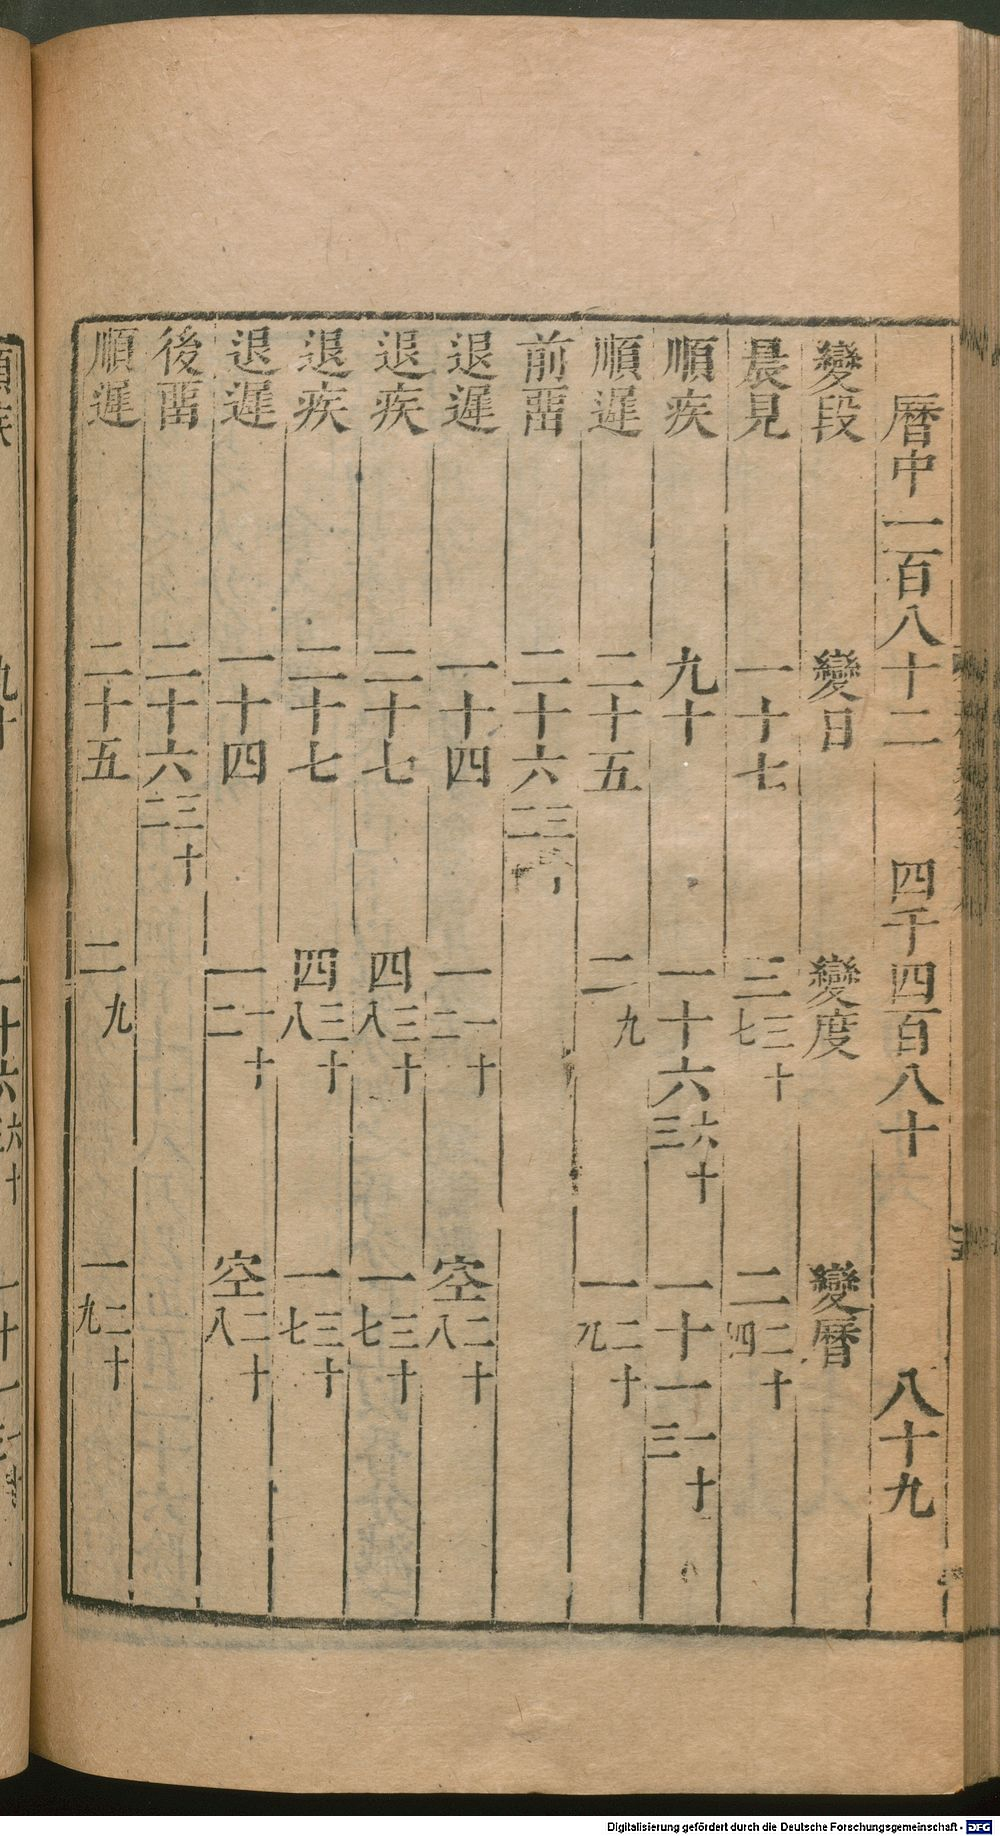 曆中一百八十二 四千四百八十 八十九
變段 變日 變度 變曆
晨見 一十七 三三十七 二二十四
順疾 九十 一十六六十三 一十一一十三
順遲 二十五 二九 一二十九
前畱 二十六三二
退遲 一十四 一一十二 空二十八
退疾 二十七 四三十八 一三十七
退疾 二十七 四三十八 一三十七
退遲 一十四 一一十二 空二十八
後畱 二十六三十二
順遲 二十五 二九 一二十九
Digitalisierung gefördert durch die Deutsche Forschungsgemeinschaft - DFG